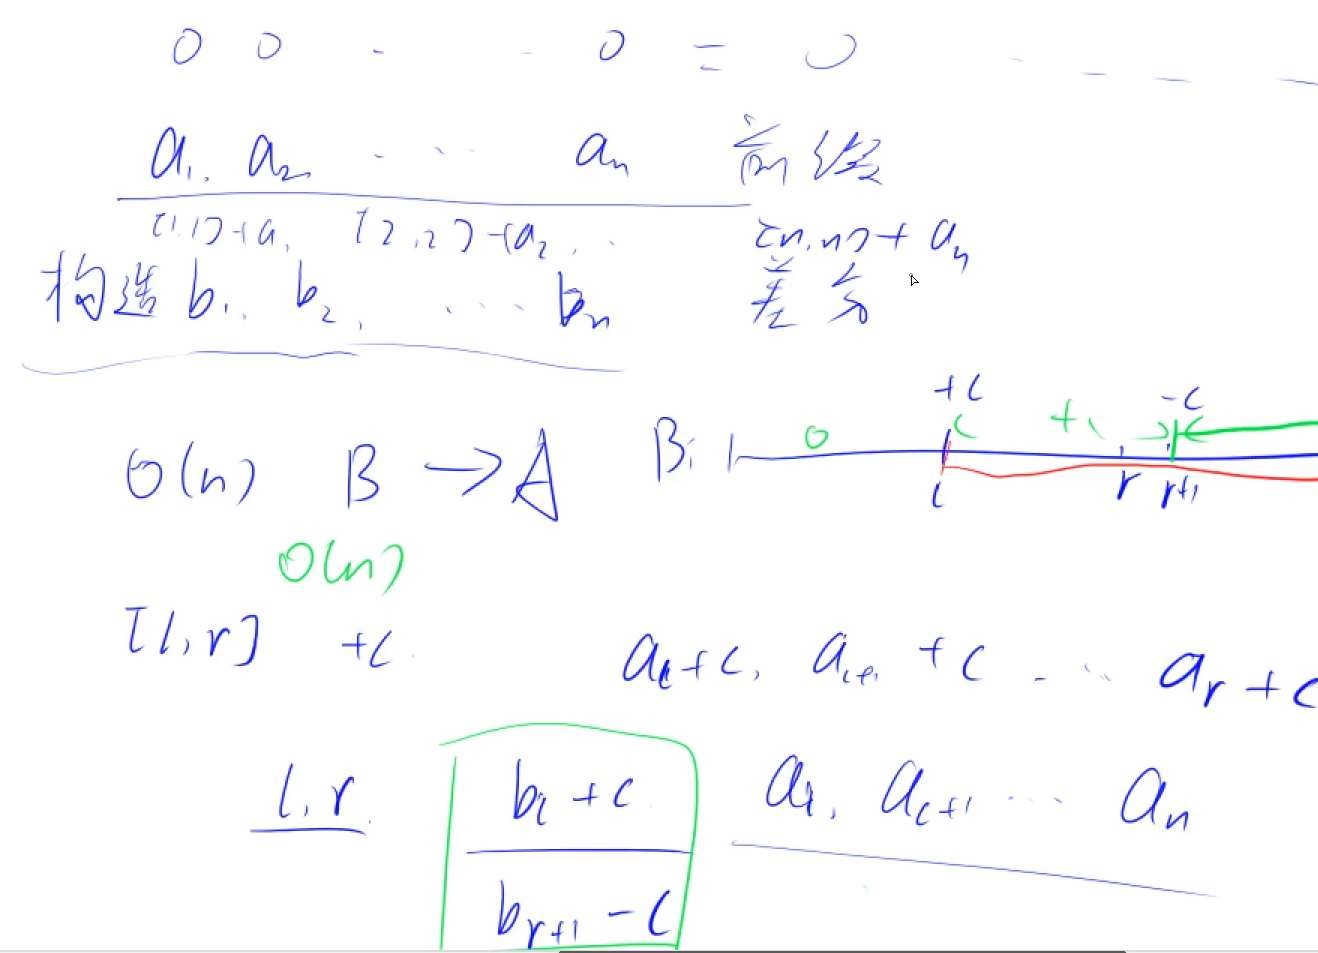 0 0 · · 0 = 0
a₁, a₂ · · · aₙ 前缀
[1,1]+a₁ [2,2]+a₂ ·· [n,n]+aₙ
构造 b₁, b₂, ··· bₙ 差分
+c -c
B: 0 +c
l r r+1
O(n) B → A
O(n)
[l,r] +c
aₗ+c, aₗ₊₁+c - ··· aᵣ+c
l,r bₗ+c aₗ, aₗ₊₁ ··· aₙ
bᵣ₊₁-c